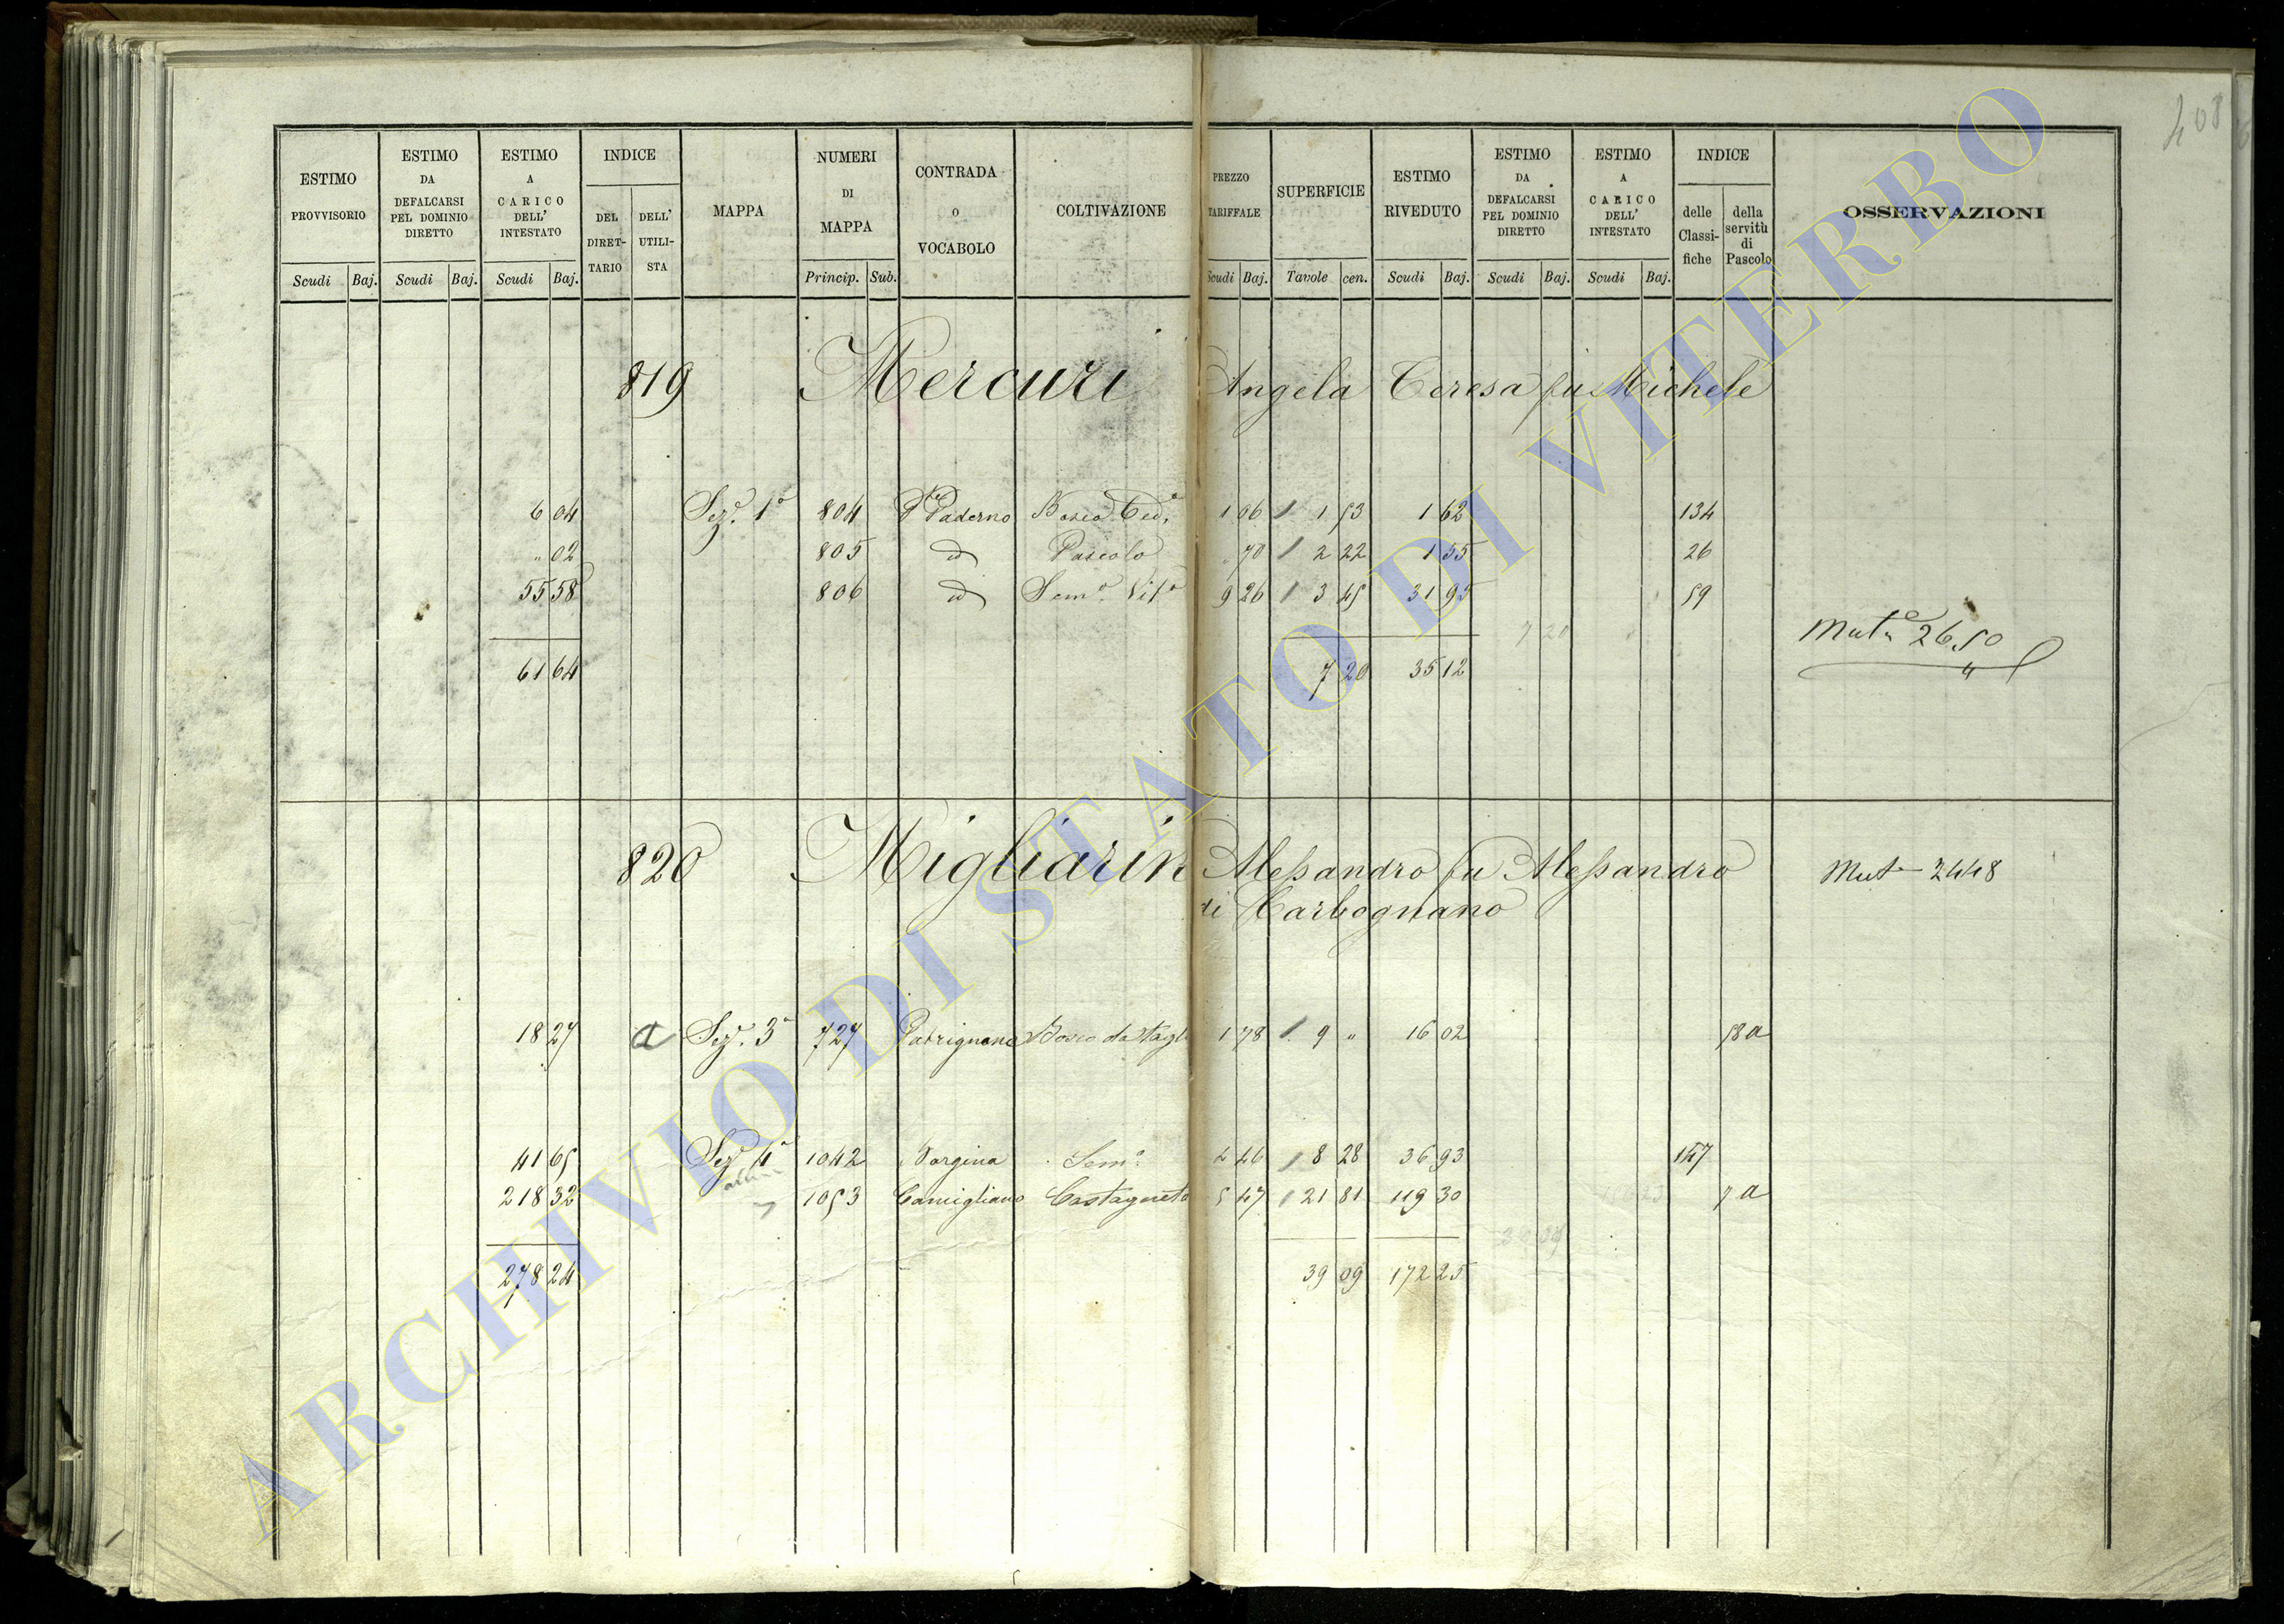 408
ESTIMO PROVVISORIO Scudi Baj.
ESTIMO DA DEFALCARSI PEL DOMINIO DIRETTO Scudi Baj.
ESTIMO A CARICO DELL' INTESTATO Scudi Baj.
INDICE DEL DIRET-TARIO DELL' UTILI-STA
MAPPA
NUMERI DI MAPPA Princip. Sub.
CONTRADA O VOCABOLO
COLTIVAZIONE
PREZZO TARIFFALE Scudi Baj.
SUPERFICIE Tavole cen.
ESTIMO RIVEDUTO Scudi Baj.
ESTIMO DA DEFALCARSI PEL DOMINIO DIRETTO Scudi Baj.
ESTIMO A CARICO DELL' INTESTATO Scudi Baj.
INDICE delle Classi-fiche della servitù di Pascolo
OSSERVAZIONI
819 Mercuri Angela Teresa fu Michele
6 04 Sez.e 1a 804 Paderno Bosco Ced. 1 06 1 53 1 62 134
" 02 805 id Pascolo 70 2 22 1 55 26
55 58 806 id Sem.o Vit.o 9 26 3 45 31 95 59
7 20
Mut.e 26,50
61 64 7 20 35 12
820 Migliarin Alessandro fu Alessandro Mut 2448
di Carbognano
18 27 a Sez. 3a 727 Patrignano Bosco da Tagl 1 78 9 " 16 02 58 a
41 65 Sez.e 4a 1042 Sem.o 4 46 8 28 36 93 147
218 32 1053 Camigliano Castagneto 5 47 21 81 119 30 7 a
278 24 39 09 172 25
ARCHIVIO DI STATO DI VITERBO